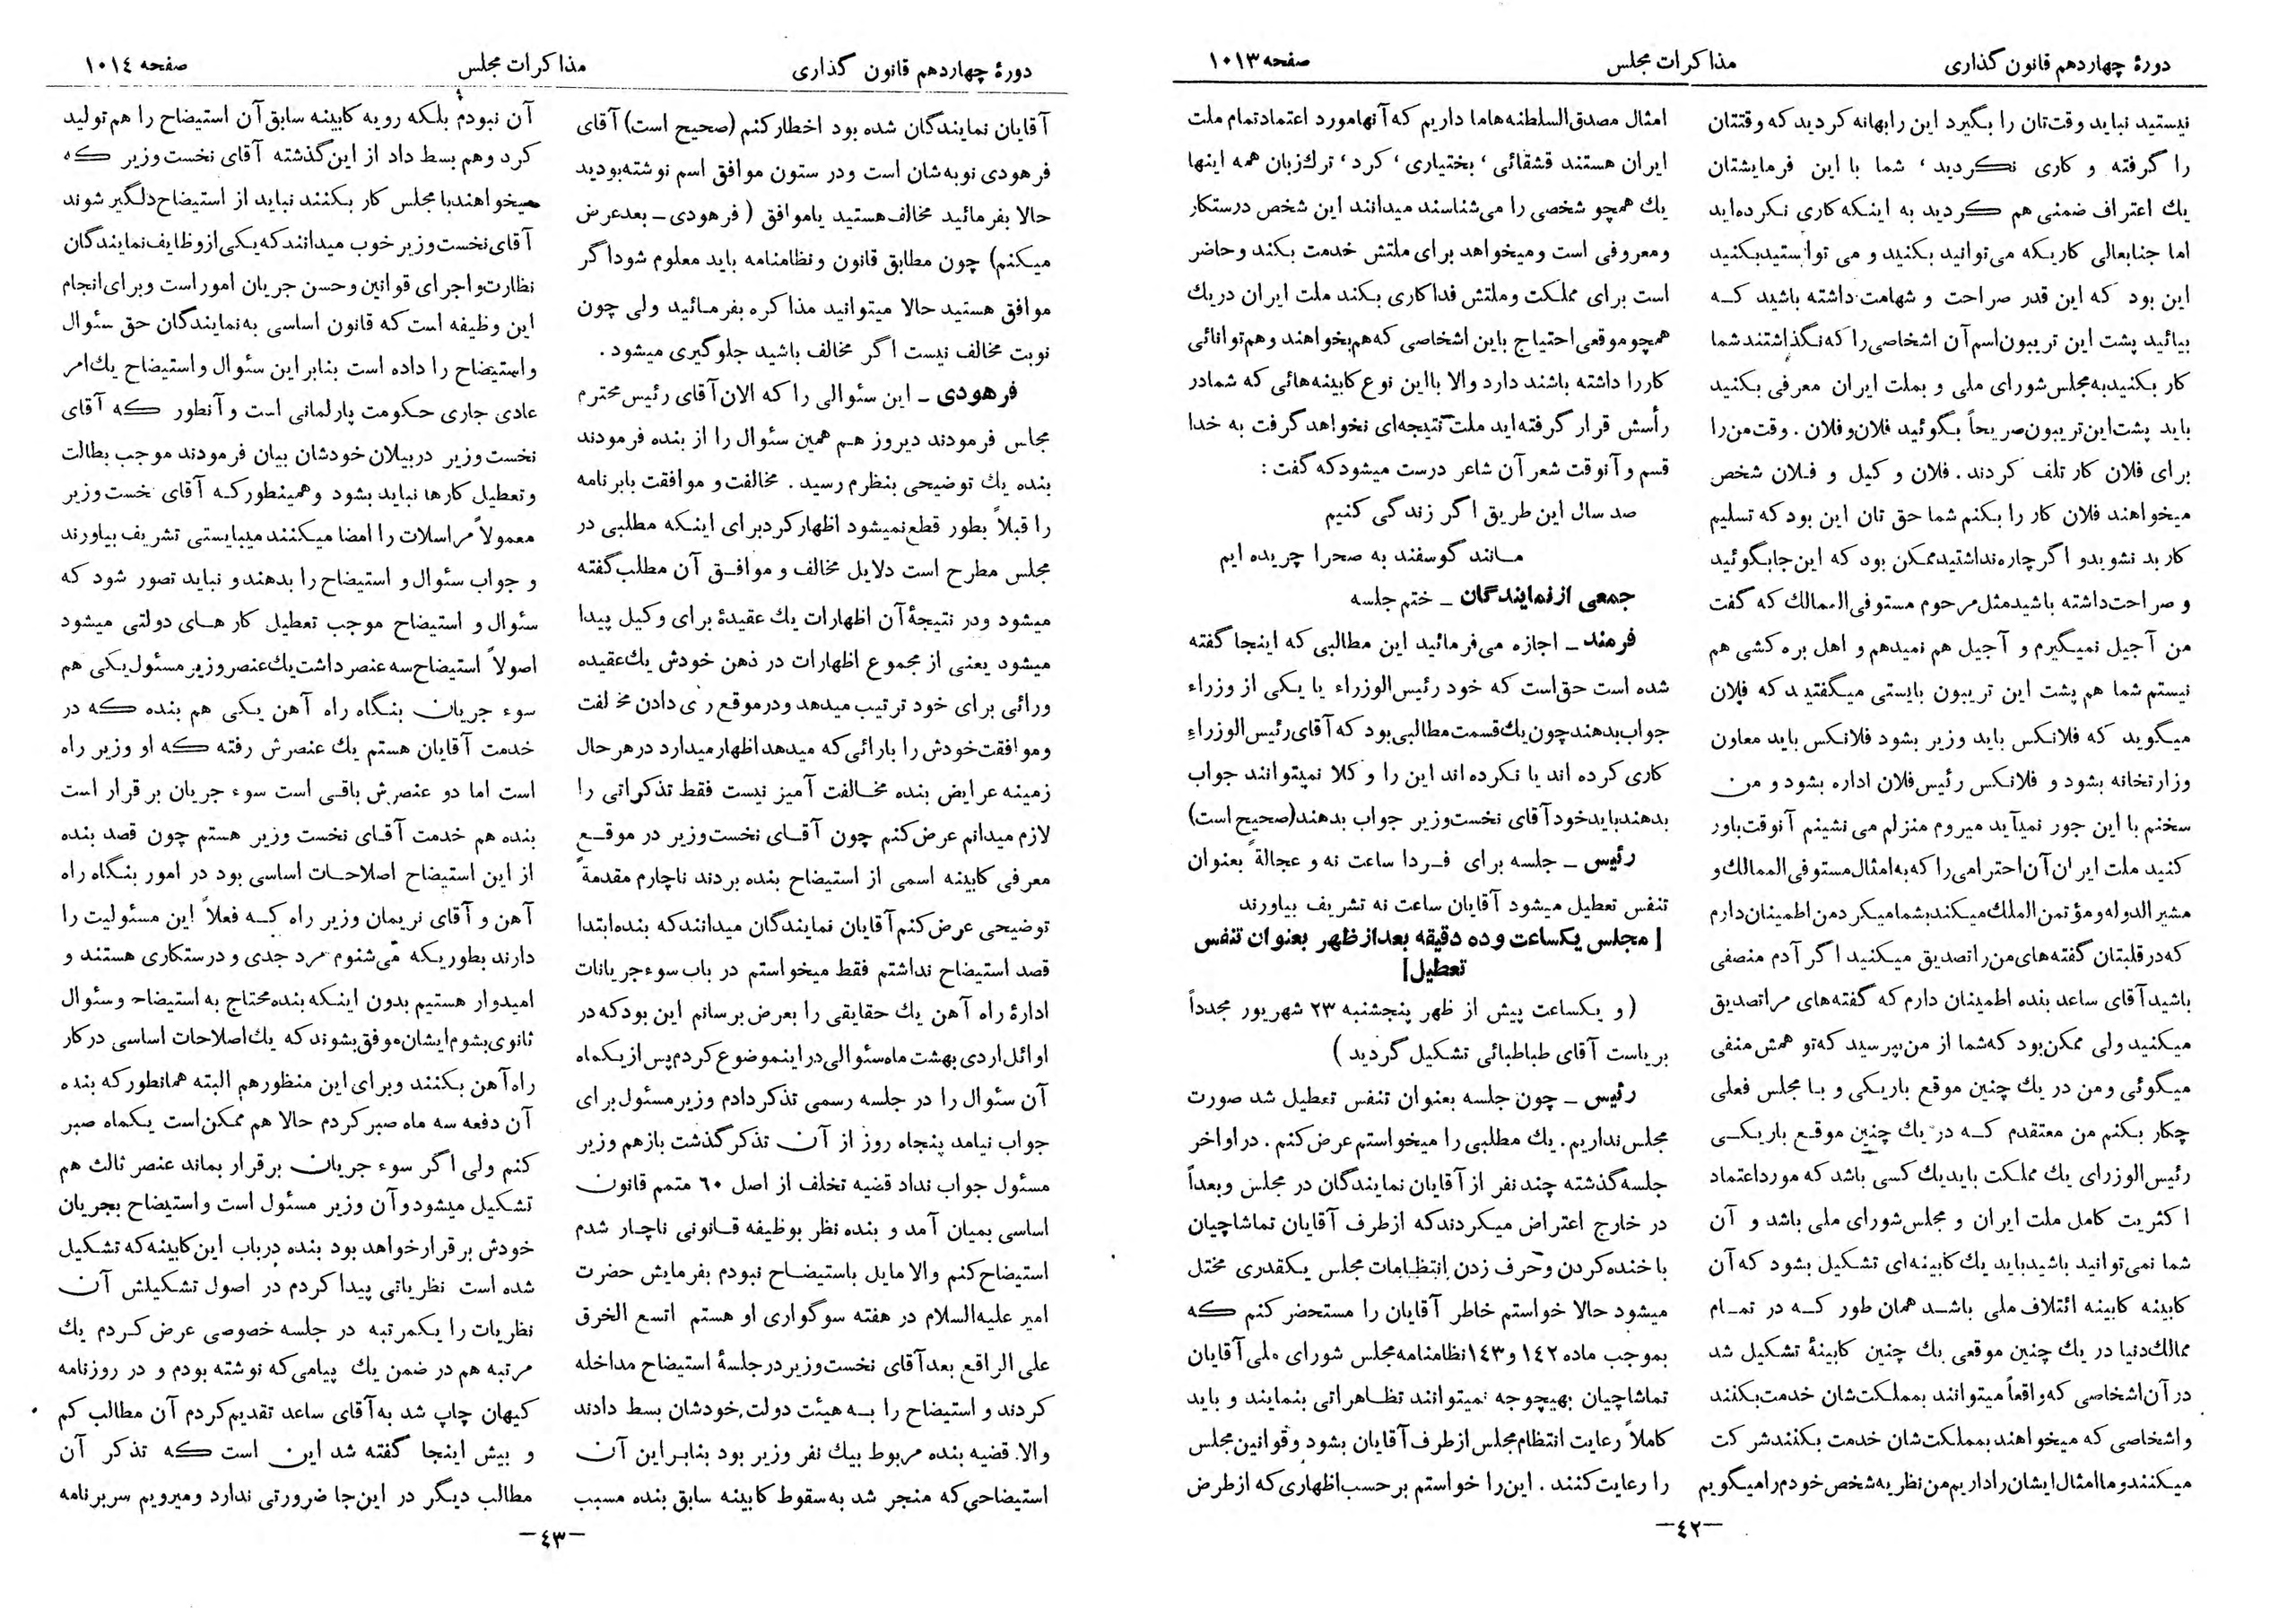 دورهٔ چهاردهم قانون گذاری
مذاکرات مجلس
صفحه ۱۰۱۳
نیستید نباید وقت‌تان را بگیرد این را بهانه کردید که وقتتان
را گرفته و کاری نکردید، شما با این فرمایشتان
یك اعتراف ضمنی هم کردید به اینکه کاری نکرده‌اید
اما جنابعالی کاریکه می‌توانید بکنید و می توانستید بکنید
این بود که این قدر صراحت و شهامت داشته باشید که
بیائید پشت این تریبون اسم آن اشخاصی را که نگذاشتند شما
کار بکنید به مجلس شورای ملی و بملت ایران معرفی بکنید
باید پشت این تریبون صریحاً بگوئید فلان و فلان . وقت من را
برای فلان کار تلف کردند . فلان و کیل و فلان شخص
میخواهند فلان کار را بکنم شما حق تان این بود که تسلیم
کار بد نشوید و اگر چاره نداشتید ممکن بود که این جا بگوئید
و صراحت داشته باشید مثل مرحوم مستوفی الممالك که گفت
من آجیل نمیگیرم و آجیل هم نمیدهم و اهل بره کشی هم
نیستم شما هم پشت این تریبون بایستی میگفتید که فلان
میگوید که فلانکس باید وزیر بشود فلانکس باید معاون
وزارتخانه بشود و فلانکس رئیس فلان اداره بشود و من
سخنم با این جور نمیآید میروم منزلم می نشینم آنوقت باور
کنید ملت ایران آن احترامی را که به امثال مستوفی الممالك و
مشیر الدوله و مؤتمن الملك میکند بشما میکرد من اطمینان دارم
که در قلبتان گفته‌های من را تصدیق میکنید اگر آدم منصفی
باشید آقای ساعد بنده اطمینان دارم که گفته‌های مرا تصدیق
میکنید ولی ممکن بود که شما از من بپرسید که تو همش منفی
میگوئی و من در یك چنین موقع باریکی و با مجلس فعلی
چکار بکنم من معتقدم که در یك چنین موقع باریکی
رئیس الوزرای یك مملکت باید یك کسی باشد که مورد اعتماد
اکثریت کامل ملت ایران و مجلس شورای ملی باشد و آن
شما نمی‌توانید باشید باید یك کابینه‌ای تشکیل بشود که آن
کابینه کابینه ائتلاف ملی باشد همان طور که در تمام
ممالك دنیا در یك چنین موقعی یك چنین کابینهٔ تشکیل شد
در آن اشخاصی که واقعاً میتوانند بمملکت‌شان خدمت بکنند
و اشخاصی که میخواهند بمملکت‌شان خدمت بکنند شرکت
میکنند و ما امثال ایشان را داریم من نظر به شخص خودم را میگویم
امثال مصدق‌السلطنه‌ها ما داریم که آنها مورد اعتماد تمام ملت
ایران هستند قشقائی، بختیاری، کرد، ترك زبان همه اینها
یك همچو شخصی را می‌شناسند میدانند این شخص درستکار
و معروفی است و میخواهد برای ملتش خدمت بکند و حاضر
است برای مملکت و ملتش فداکاری بکند ملت ایران در یك
همچو موقعی احتیاج باین اشخاصی که هم بخواهند و هم توانائی
کار را داشته باشند دارد والا با این نوع کابینه‌هائی که شما در
رأسش قرار گرفته‌اید ملت نتیجه‌ای نخواهد گرفت به خدا
قسم و آنوقت شعر آن شاعر درست میشود که گفت :
صد سال این طریق اگر زندگی کنیم
مانند گوسفند به صحرا چریده ایم
جمعی از نمایندگان ـ ختم جلسه
فرمند ـ اجازه می‌فرمائید این مطالبی که اینجا گفته
شده است حق‌است که خود رئیس الوزراء یا یکی از وزراء
جواب بدهند چون یك قسمت مطالبی بود که آقای رئیس الوزراء
کاری کرده اند یا نکرده‌اند این را وکلا نمیتوانند جواب
بدهند باید خود آقای نخست‌وزیر جواب بدهند (صحیح است)
رئیس ـ جلسه برای فردا ساعت نه و عجالةً بعنوان
تنفس تعطیل میشود آقایان ساعت نه تشریف بیاورند
[ مجلس یکساعت و ده دقیقه بعد از ظهر بعنوان تنفس
تعطیل ]
( و یکساعت پیش از ظهر پنجشنبه ۲۳ شهریور مجدداً
بریاست آقای طباطبائی تشکیل گردید )
رئیس ـ چون جلسه بعنوان تنفس تعطیل شد صورت
مجلس نداریم . یك مطلبی را میخواستم عرض کنم . در اواخر
جلسه گذشته چند نفر از آقایان نمایندگان در مجلس و بعداً
در خارج اعتراض میکردند که از طرف آقایان تماشاچیان
با خنده کردن و حرف زدن انتظامات مجلس یکقدری مختل
میشود حالا خواستم خاطر آقایان را مستحضر کنم که
بموجب ماده ۱۴۲ و ۱۴۳ نظامنامه مجلس شورای ملی آقایان
تماشاچیان بهیچوجه نمیتوانند تظاهراتی بنمایند و باید
کاملاً رعایت انتظام مجلس از طرف آقایان بشود و قوانین مجلس
را رعایت کنند . این را خواستم بر حسب اظهاری که از طرض
ـ۴۲ـ
دورهٔ چهاردهم قانون گذاری
مذاکرات مجلس
صفحه ۱۰۱۴
آقایان نمایندگان شده بود اخطار کنم (صحیح است) آقای
فرهودی نوبه‌شان است و در ستون موافق اسم نوشته بودید
حالا بفرمائید مخالف هستید یا موافق ( فرهودی ـ بعد عرض
میکنم) چون مطابق قانون و نظامنامه باید معلوم شود اگر
موافق هستید حالا میتوانید مذاکره بفرمائید ولی چون
نوبت مخالف نیست اگر مخالف باشید جلوگیری میشود .
فرهودی ـ این سئوالی را که الان آقای رئیس محترم
مجلس فرمودند دیروز هم همین سئوال را از بنده فرمودند
بنده یك توضیحی بنظرم رسید . مخالفت و موافقت با برنامه
را قبلاً بطور قطع نمیشود اظهار کرد برای اینکه مطلبی در
مجلس مطرح است دلایل مخالف و موافق آن مطلب گفته
میشود و در نتیجهٔ آن اظهارات یك عقیدهٔ برای وکیل پیدا
میشود یعنی از مجموع اظهارات در ذهن خودش یك عقیده
ورائی برای خود ترتیب میدهد و در موقع رأی دادن مخالفت
و موافقت خودش را بارائی که میدهد اظهار میدارد در هر حال
زمینه عرایض بنده مخالفت آمیز نیست فقط تذکراتی را
لازم میدانم عرض کنم چون آقای نخست‌وزیر در موقع
معرفی کابینه اسمی از استیضاح بنده بردند ناچارم مقدمةً
توضیحی عرض کنم آقایان نمایندگان میدانند که بنده ابتدا
قصد استیضاح نداشتم فقط میخواستم در باب سوء جریانات
ادارهٔ راه آهن یك حقایقی را بعرض برسانم این بود که در
اوائل اردی بهشت ماه سئوالی در اینموضوع کردم پس از یکماه
آن سئوال را در جلسه رسمی تذکر دادم وزیر مسئول برای
جواب نیامد پنجاه روز از آن تذکر گذشت باز هم وزیر
مسئول جواب نداد قضیه تخلف از اصل ۶۰ متمم قانون
اساسی بمیان آمد و بنده نظر بوظیفه قانونی ناچار شدم
استیضاح کنم والا مایل باستیضاح نبودم بفرمایش حضرت
امیر علیه‌السلام در هفته سوگواری او هستم اتسع الخرق
علی الراقع بعد آقای نخست‌وزیر در جلسهٔ استیضاح مداخله
کردند و استیضاح را به هیئت دولت خودشان بسط دادند
والا قضیه بنده مربوط بیك نفر وزیر بود بنابراین آن
استیضاحی که منجر شد به سقوط کابینه سابق بنده مسبب
آن نبودم بلکه رویه کابینه سابق آن استیضاح را هم تولید
کرد و هم بسط داد از این گذشته آقای نخست وزیر که
میخواهند با مجلس کار بکنند نباید از استیضاح دلگیر شوند
آقای نخست وزیر خوب میدانند که یکی از وظایف نمایندگان
نظارت و اجرای قوانین و حسن جریان امور است و برای انجام
این وظیفه است که قانون اساسی به نمایندگان حق سئوال
و استیضاح را داده است بنابراین سئوال و استیضاح یك امر
عادی جاری حکومت پارلمانی است و آنطور که آقای
نخست وزیر در بیلان خودشان بیان فرمودند موجب بطالت
و تعطیل کارها نباید بشود و همینطور که آقای نخست وزیر
معمولاً مراسلات را امضا میکنند میبایستی تشریف بیاورند
و جواب سئوال و استیضاح را بدهند و نباید تصور شود که
سئوال و استیضاح موجب تعطیل کار های دولتی میشود
اصولاً استیضاح سه عنصر داشت یك عنصر وزیر مسئول یکی هم
سوء جریان بنگاه راه آهن یکی هم بنده که در
خدمت آقایان هستم یك عنصرش رفته که او وزیر راه
است اما دو عنصرش باقی است سوء جریان بر قرار است
بنده هم خدمت آقای نخست وزیر هستم چون قصد بنده
از این استیضاح اصلاحات اساسی بود در امور بنگاه راه
آهن و آقای نریمان وزیر راه که فعلاً این مسئولیت را
دارند بطوریکه می‌شنوم مرد جدی و درستکاری هستند و
امیدوار هستیم بدون اینکه بنده محتاج به استیضاح و سئوال
ثانوی بشوم ایشان موفق بشوند که یك اصلاحات اساسی در کار
راه آهن بکنند و برای این منظور هم البته همانطور که بنده
آن دفعه سه ماه صبر کردم حالا هم ممکن است یکماه صبر
کنم ولی اگر سوء جریان برقرار بماند عنصر ثالث هم
تشکیل میشود و آن وزیر مسئول است و استیضاح بجریان
خودش برقرار خواهد بود بنده در باب این کابینه که تشکیل
شده است نظریاتی پیدا کردم در اصول تشکیلش آن
نظریات را یکمرتبه در جلسه خصوصی عرض کردم یك
مرتبه هم در ضمن یك پیامی که نوشته بودم و در روزنامه
کیهان چاپ شد به آقای ساعد تقدیم کردم آن مطالب کم
و بیش اینجا گفته شد این است که تذکر آن
مطالب دیگر در این جا ضرورتی ندارد و میرویم سر برنامه
ـ۴۳ـ